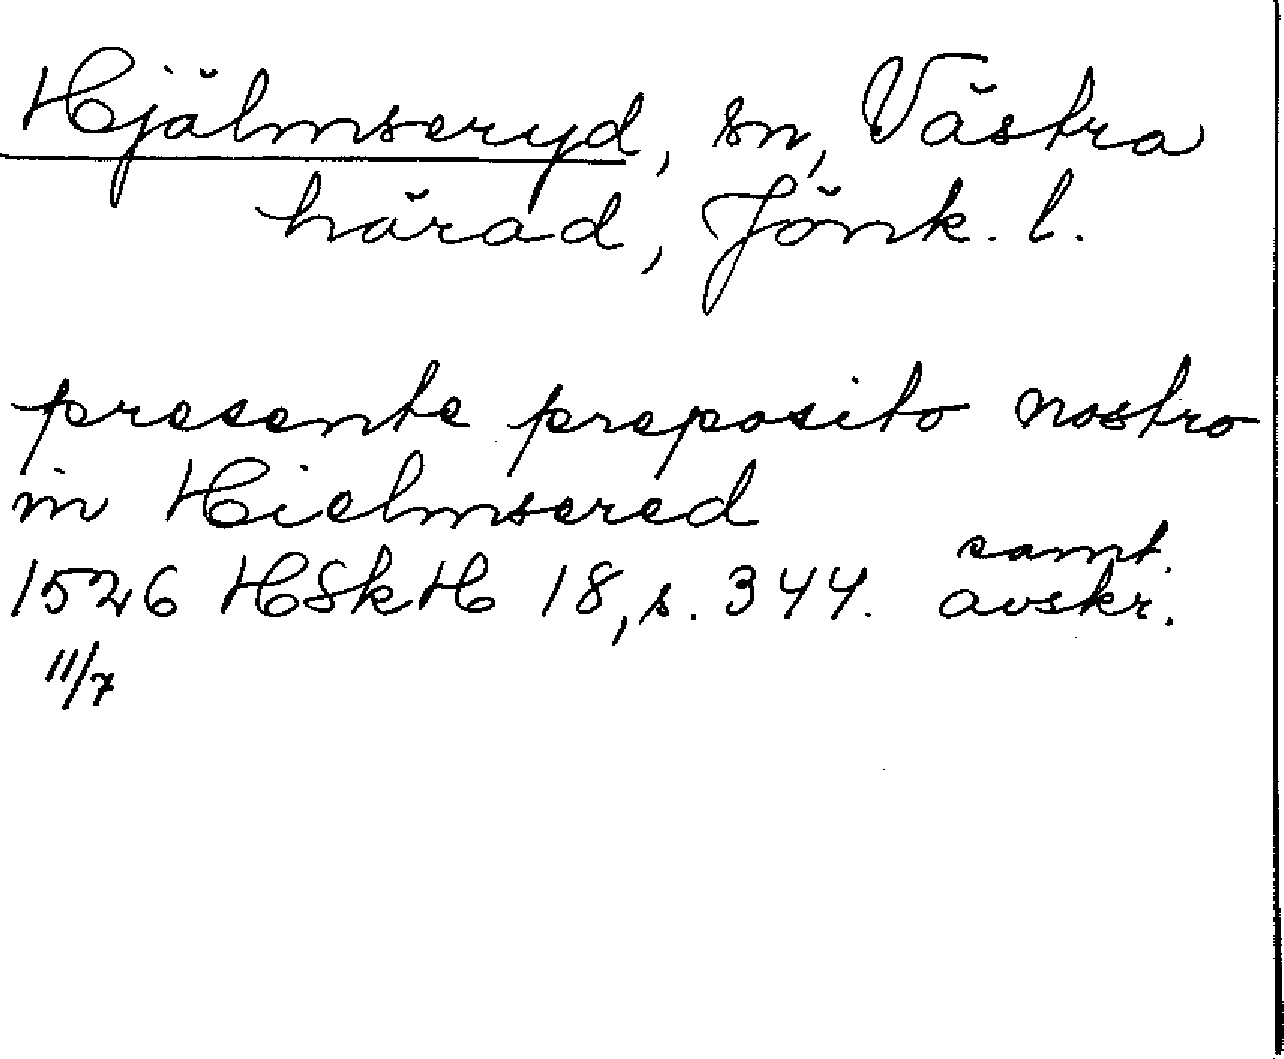 Hjälmseryd, sn, Västra
härad, Jönk. l.
presente preposito nostro
in Hielmsered
1526 HSkH 18, s. 344. samt. avskr.
11/7